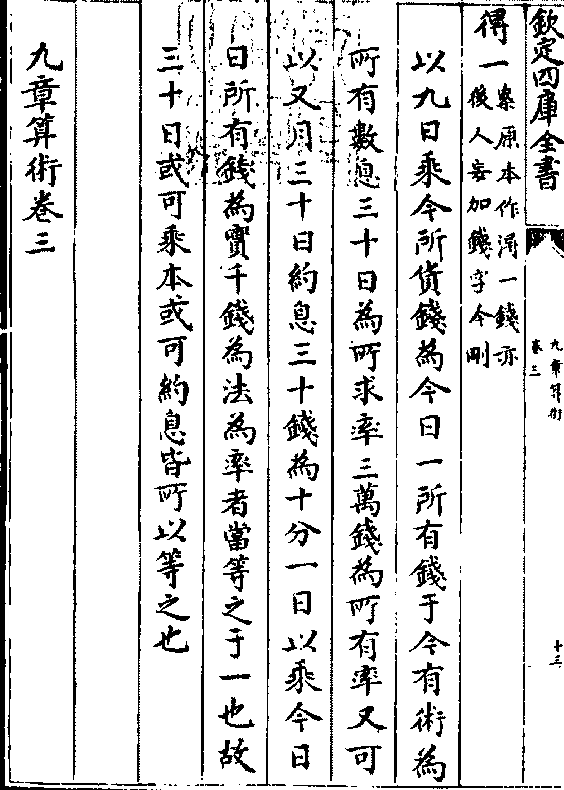 欽定四庫全書
九章算術
卷三
十三
得一案原本作得一錢亦
後人妄加錢字今刪
以九日乘今所貸錢為今日一所有錢于今有術為
所有數息三十日為所求率三萬錢為所有率又可
以又月三十日約息三十錢為十分一日以乘今日
日所有錢為實千錢為法為率者當等之于一也故
三十日或可乘本或可約息皆所以等之也
九章算術卷三